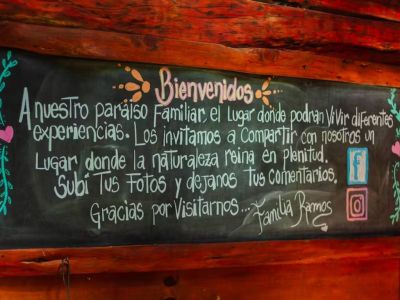 Bienvenidos
A nuestro paraiso Familiar el lugar donde podran ViVir diferentes
experiencias. Los invitamos a Compartir con nosotros un
Lugar donde la naturaleza reina en plenitud.
Subí Tus Fotos y dejanos tus comentarios,
Gracias por Visitarnos... Familia Ramos